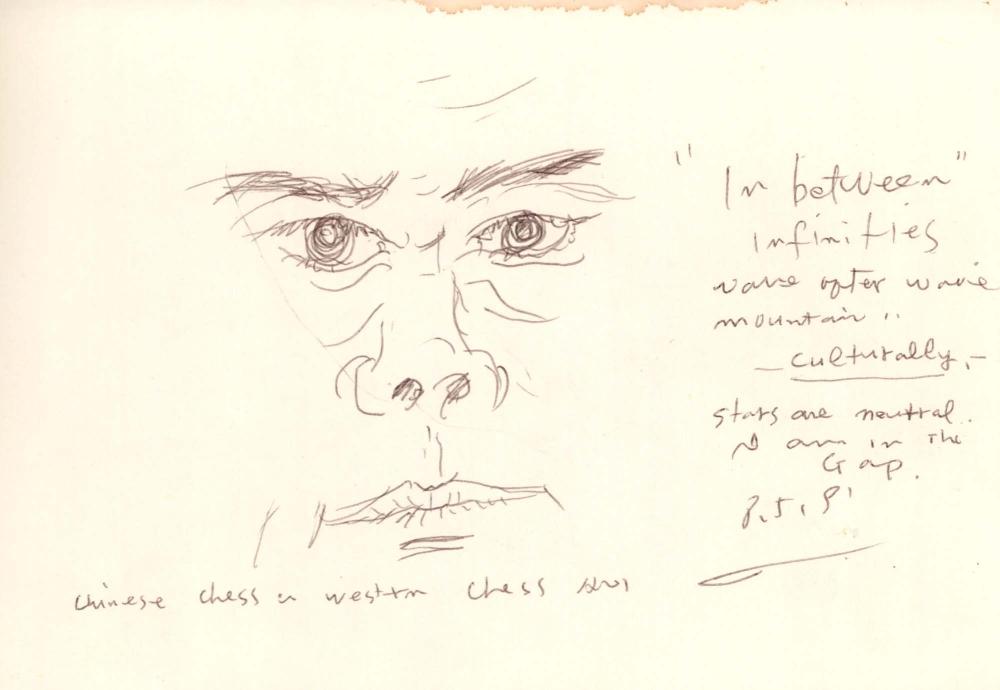 "In between"
infinities
wave after wave
mountain ..
— culturally, —
stars are neutral.
I am in The
Gap.
chinese chess western chess